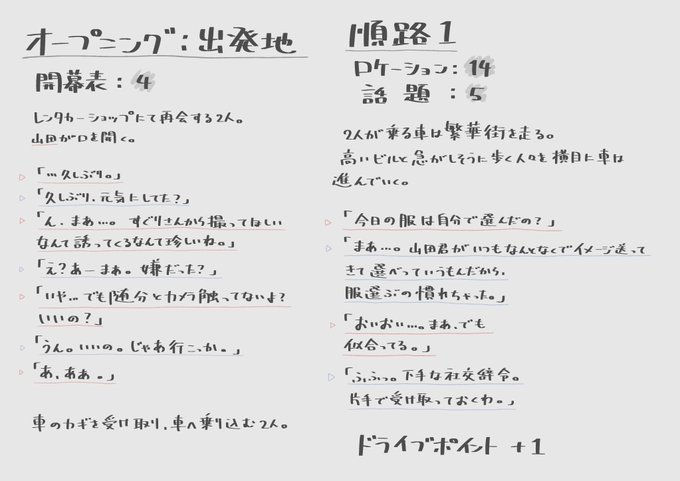 オープニング:出発地
開幕表:4
レンタカーショップにて再会する2人。
山田が口を開く。
「…久しぶり。」
「久しぶり、元気にしてた?」
「ん、まぁ…。すぐりさんから撮ってほしい
なんて誘ってくるなんて珍しいね。」
「え?あーまぁ。嫌だった?」
「いや…でも随分とカメラ触ってないよ?
いいの?」
「うん。いいの。じゃあ行こっか。」
「あ、ああ。」
車のカギを受け取り、車へ乗り込む2人。
順路1
ロケーション:14
話題:5
2人が乗る車は繁華街を走る。
高いビルと急がしそうに歩く人々を横目に車は
進んでいく。
「今日の服は自分で選んだの?」
「まぁ…。山田君がいつもなんとなくでイメージ送って
きて選べっていうもんだから、
服選ぶの慣れちゃった。」
「おいおい…。まぁ、でも
似合ってる。」
「ふふっ。下手な社交辞令。
片手で受け取っておくわ。」
ドライブポイント +1